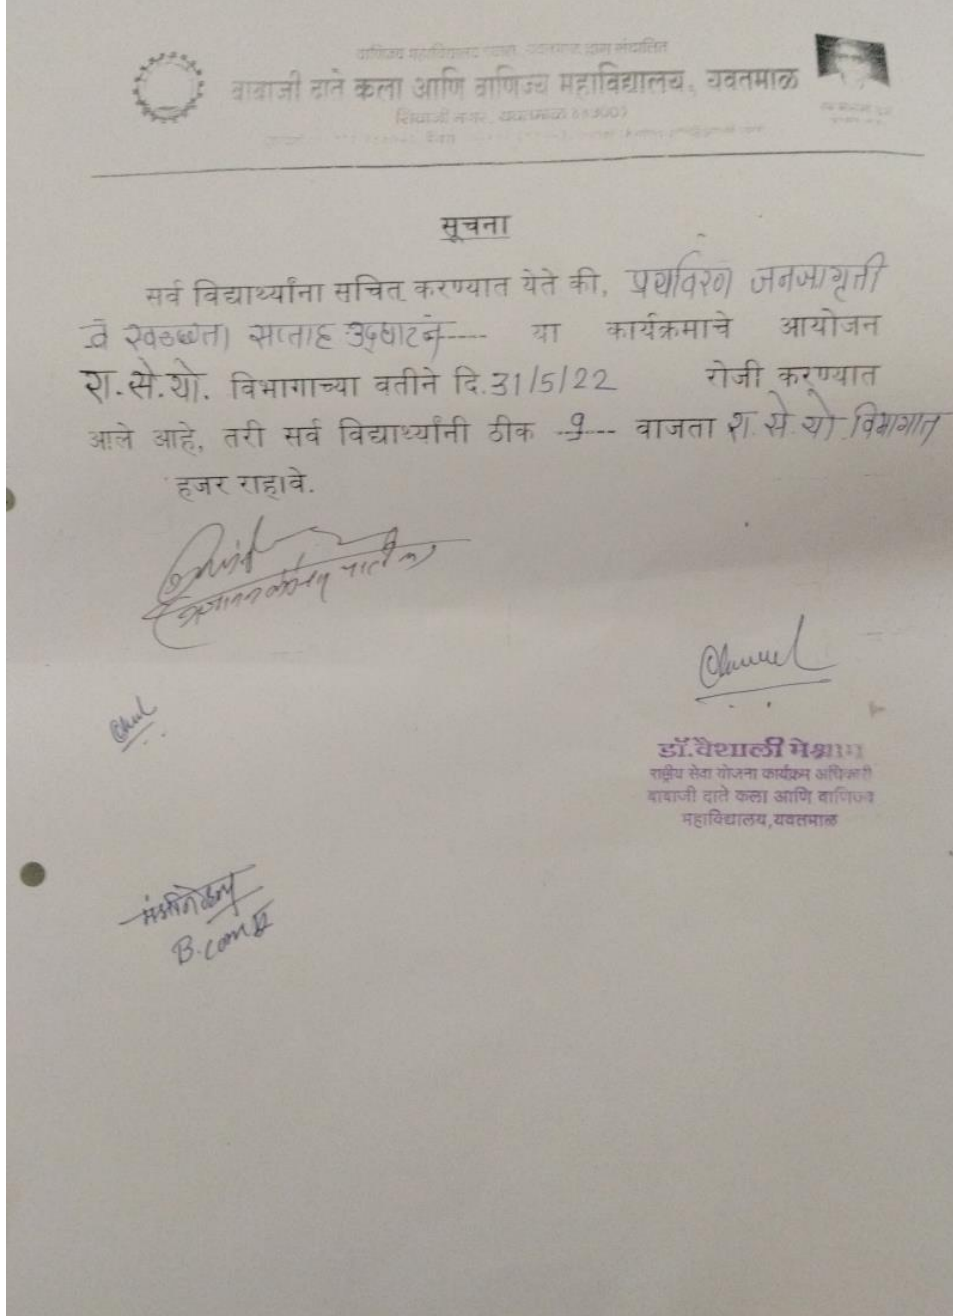 बाबाजी दाते कला आणि वाणिज्य महाविद्यालय, यवतमाळ
शिवाजी नगर, यवतमाळ
सूचना
सर्व विद्यार्थ्यांना सचित् करण्यात येते की, पर्यावरण जनजागृती
व स्वच्छता सप्ताह उद्घाटन---- या कार्यक्रमाचे आयोजन
रा.से.यो. विभागाच्या वतीने दि.31/5/22 रोजी करण्यात
आले आहे, तरी सर्व विद्यार्थ्यांनी ठीक -9--- वाजता रा.से.यो. विभागात
हजर राहावे.
डॉ.वैशाली मेश्राम
राष्ट्रीय सेवा योजना कार्यक्रम अधिकारी
बाबाजी दाते कला आणि वाणिज्य
महाविद्यालय,यवतमाळ
B.com